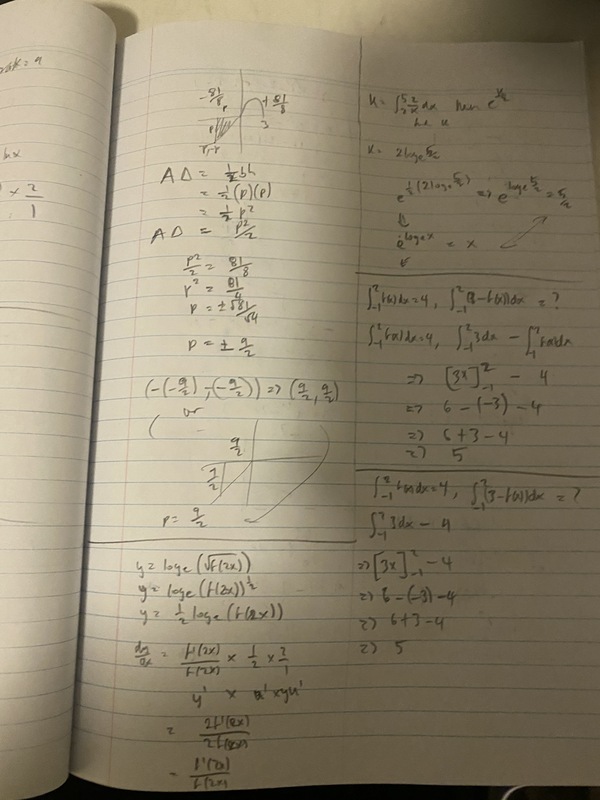 -81/8
+81/8
p
p
3
A Δ = 1/2 bh
= 1/2 (p)(p)
= 1/2 p²
A Δ = p²/2
p²/2 = 81/8
p² = 81/4
p = ±√81/√4
p = ± 9/2
(-(-9/2), -(-9/2)) => (9/2, 9/2)
or
( -
9/2
p = 9/2
y = loge (√f(2x))
y = loge (f(2x))^1/2
y = 1/2 loge (f(2x))
dy/dx = f'(2x)/f(2x) × 1/2 × 2/1
= 2f'(2x)/2f(2x)
= f'(2x)/f(2x)
K = 2 loge 5/2
e^1/2(2 loge 5/2) => e^loge 5/2 = 5/2
e^loge x = x
∫_-1^2 f(x)dx = 4, ∫_-1^2 (3-f(x))dx = ?
∫_-1^2 f(x)dx = 4, ∫_-1^2 3dx - ∫_-1^2 f(x)dx
=> [3x]_-1^2 - 4
=> 6 - (-3) - 4
=> 6 + 3 - 4
=> 5
∫_-1^2 f(x)dx = 4, ∫_-1^2 (3-f(x))dx = ?
∫_-1^2 3dx - 4
=> [3x]_-1^2 - 4
=> 6 - (-3) - 4
=> 6 + 3 - 4
=> 5